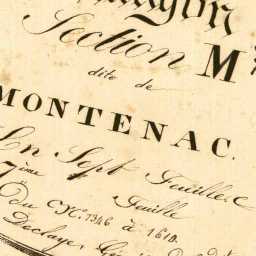 Section M
dite de
MONTENAC.
En Sept Feuilles
7ème Feuille
Du N.º 1346 à 1610.